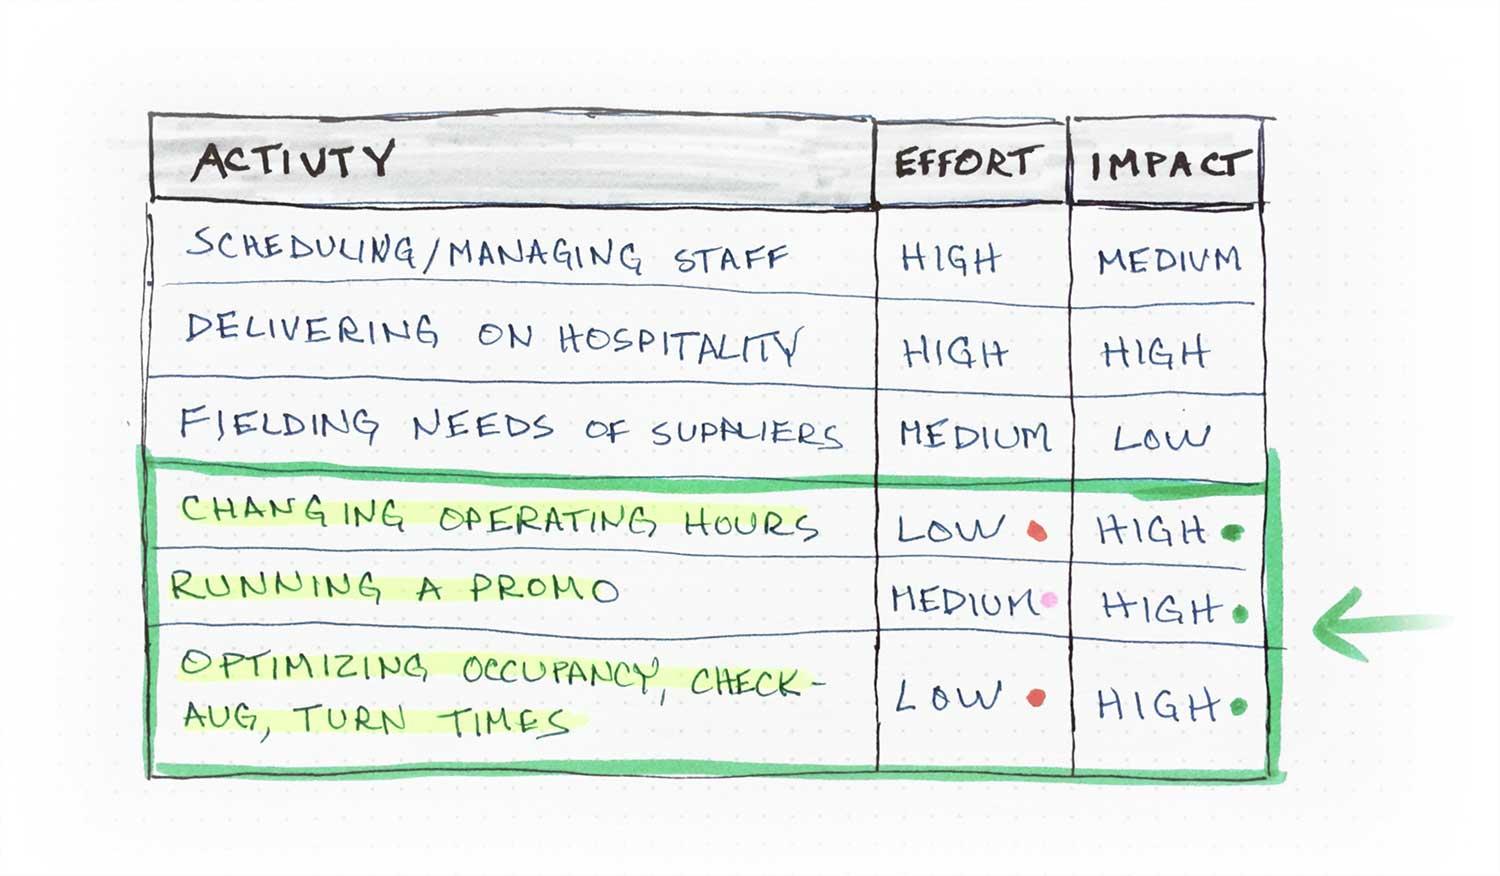 ACTIVTY EFFORT IMPACT
SCHEDULING/MANAGING STAFF HIGH MEDIUM
DELIVERING ON HOSPITALITY HIGH HIGH
FIELDING NEEDS OF SUPPLIERS MEDIUM LOW
CHANGING OPERATING HOURS LOW HIGH
RUNNING A PROMO MEDIUM HIGH
OPTIMIZING OCCUPANCY, CHECK-
AUG, TURN TIMES LOW HIGH